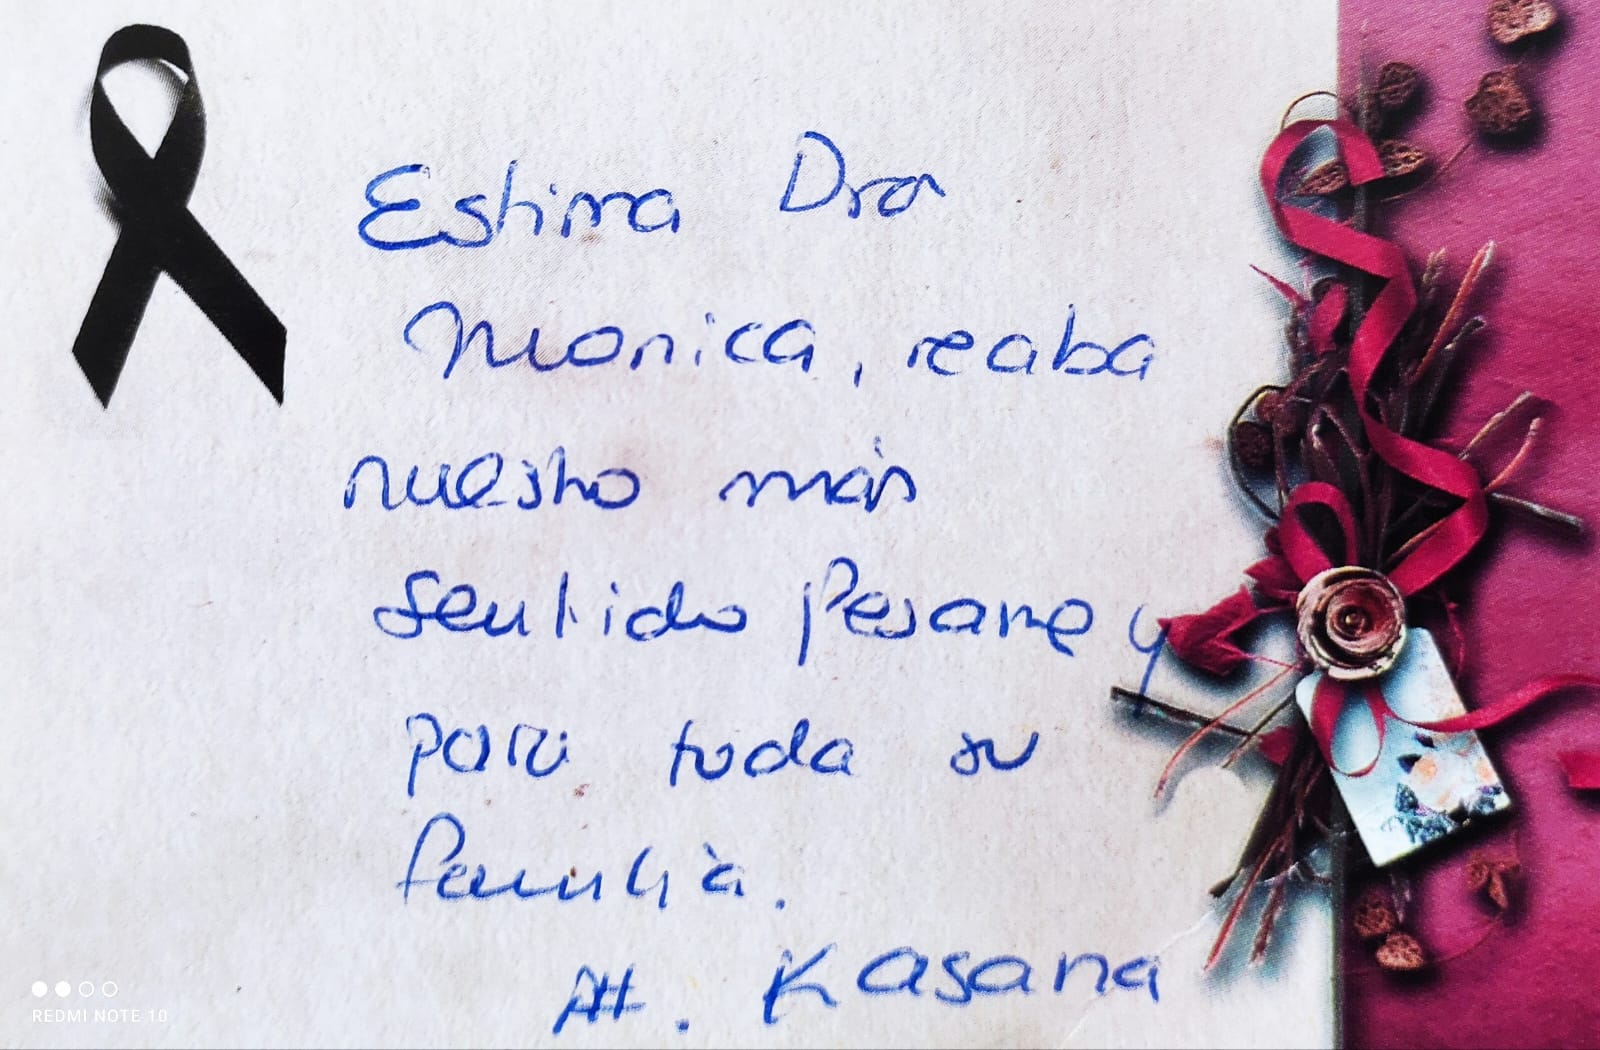 Estima Dra
Monica, reaba
nuestro más
sentido Pesame y
para toda su
familia.
Att. Kasana
REDMI NOTE 10